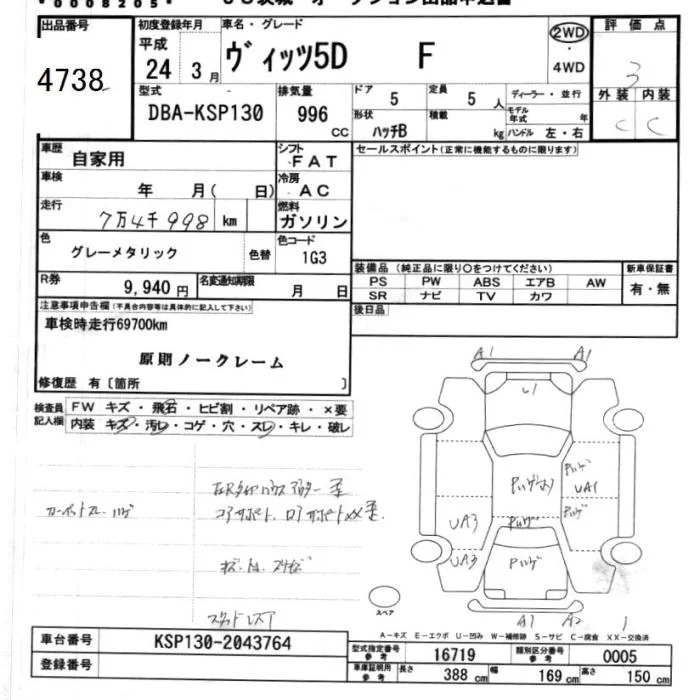 *00008205*
出品番号
4738
初度登録年月
平成
24 3月
車名・グレード
ヴィッツ5D F
2WD
・
4WD
評価点
3
型式
DBA-KSP130
排気量
996
CC
ドア
5
定員
5 人
ディーラー・並行
形状
ハッチB
積載
kg
モデル年式
年
ハンドル 左・右
外装 内装
C C
車歴
自家用
シフト
FAT
セールスポイント(正常に機能するものに限ります)
車検
年 月( 日)
冷房
AC
走行
7万4千998 km
燃料
ガソリン
色
グレーメタリック
色替
色コード
1G3
装備品(純正品に限り○をつけてください)
新車保証書
PS PW ABS エアB AW
SR ナビ TV カワ
有・無
R券
9,940円
名変通知期限
月 日
後日品
注意事項申告欄(不具合内容等は具体的に記入して下さい)
車検時走行69700km
原則ノークレーム
修復歴 有〔箇所 〕
検査員
記入欄
FW キズ・飛石・ヒビ割・リペア跡・×要
内装 キズ・汚レ・コゲ・穴・スレ・キレ・破レ
A1 A1
U1
UA1
UA3
UA3
スペア
A1 A2 1
A-キズ E-エクボ U-凹み W-補修跡 S-サビ C-腐食 XX-交換済
車台番号
KSP130-2043764
登録番号
型式指定番号
参考
16719
類別区分番号
参考
0005
車庫証明用
参考
長さ
388 cm
幅
169 cm
高さ
150 cm